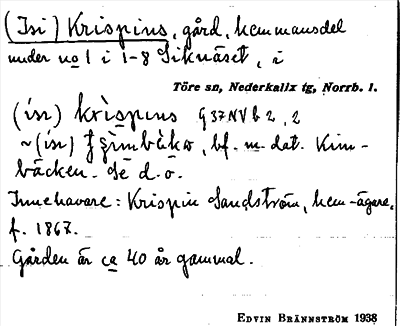 (Isi) Krispins, gård, hemmansdel
under no 1 i 1-8 Siknäset, i
Töre sn, Nederkalix tg, Norrb. l.
(ísɪ) krispins G37NVb 2, 2
~(ísɪ) bf. m. dat. Kim-
bäcken. Se d. o.
Innehavare: Krispin Sandström, hem-ägare,
f. 1867.
Gården är ca 40 år gammal.
EDVIN BRÄNNSTRÖM 1938